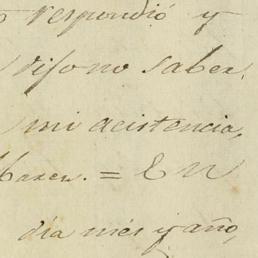 respondió y
dijo no saber.
mi acistencia,
= En
dia mes y año,